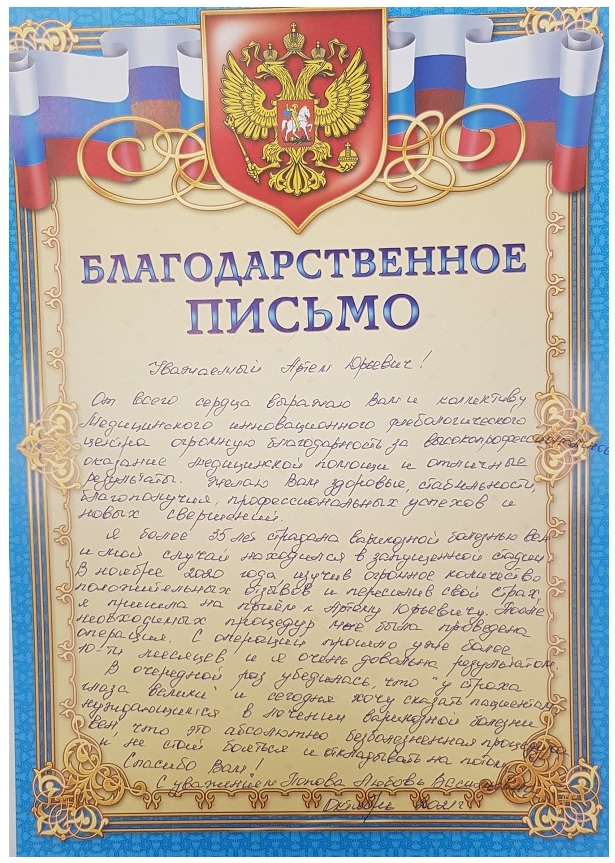 БЛАГОДАРСТВЕННОЕ
ПИСЬМО
Уважаемый Артем Юрьевич!
От всего сердца выражаю Вам и коллективу
Медицинского инновационного флебологического
центра огромную благодарность за высокопрофессиональное
оказание медицинской помощи и отличные
результаты. Желаю Вам здоровья, стабильности,
благополучия, профессиональных успехов и
новых свершений.
Я более 35 лет страдала варикозной болезнью вен
и мой случай находился в запущенной стадии.
В ноябре 2020 года, изучив огромное количество
положительных отзывов и пересилив свой страх,
я пришла на приём к Артему Юрьевичу. После
необходимых процедур мне была проведена
операция. С операции прошло уже более
10-ти месяцев, и я очень довольна результатом.
В очередной раз убедилась, что "у страха
глаза велики" и сегодня хочу сказать пациентам,
нуждающимся в лечении варикозной болезни
вен, что это абсолютно безболезненная процедура
и не стои бояться и откладывать на потом.
Спасибо Вам!
С уважением Попова Любовь
Октябрь 2021г